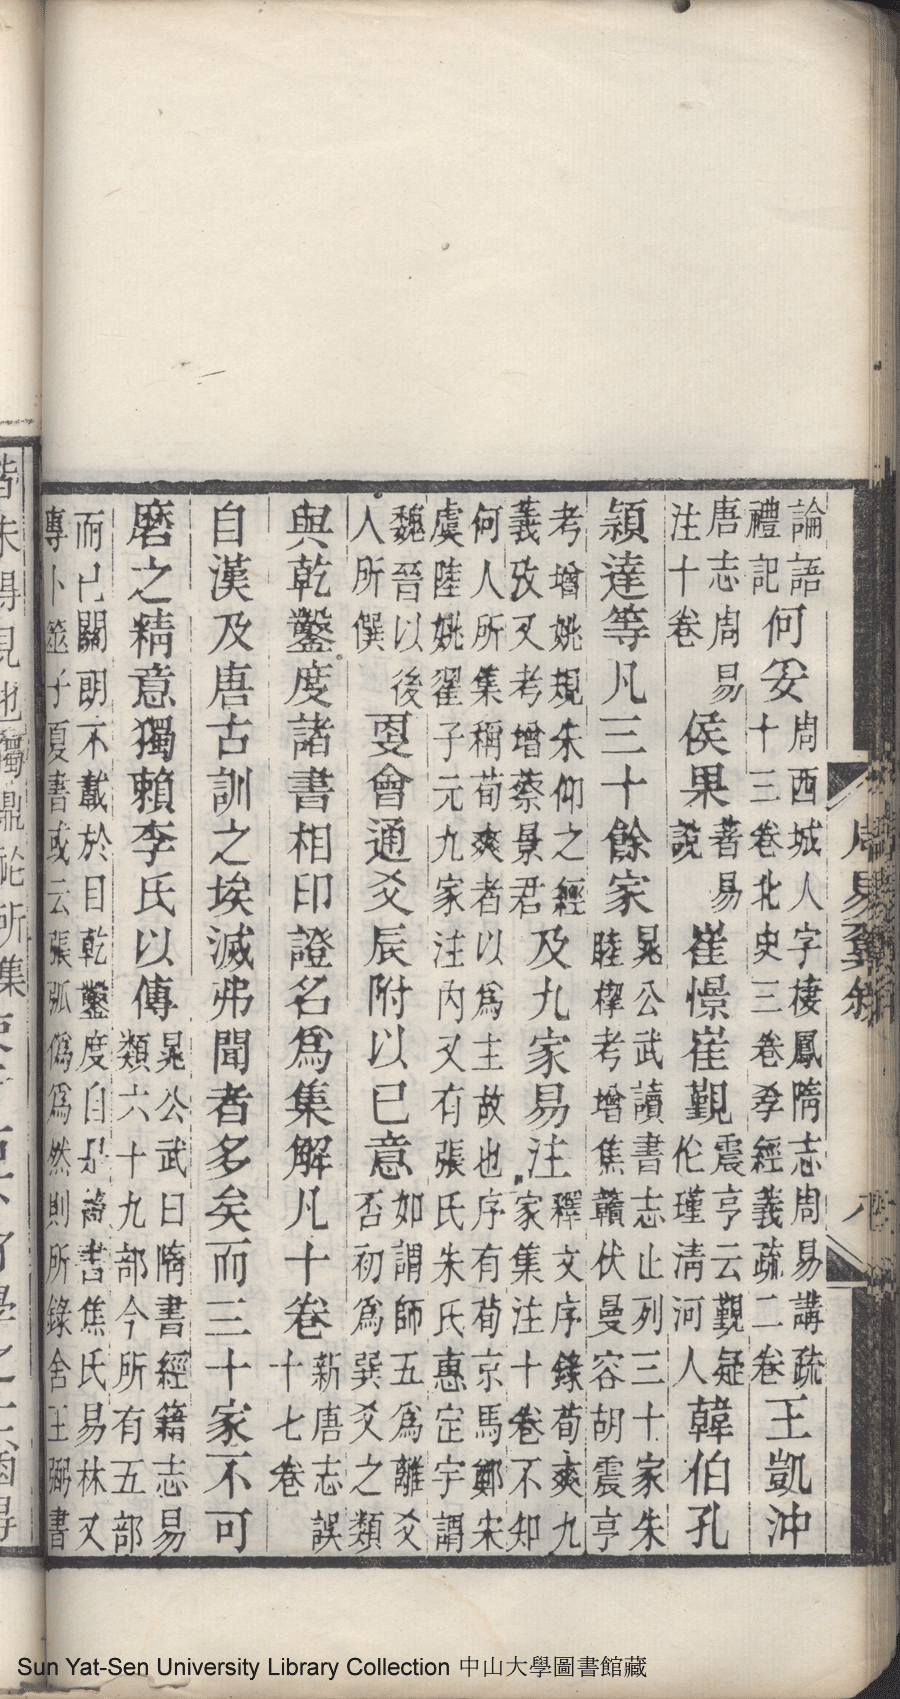 論語
禮記
何妥
周西城人字棲鳳隋志周易講疏
十三卷北史三卷孝經義疏二卷
王凱沖
唐志周易
注十卷
侯果
著易
說
崔憬崔覲
震亨云覲疑
伦瑾清河人
韓伯孔
頴達等凡三十餘家
晁公武讀書志止列三十家朱
睦㮮考增焦贛伏曼容胡震亨
考增姚規朱仰之經
義攷又考增蔡景君
及九家易注
釋文序錄荀爽九
家集注十卷不知
何人所集稱荀爽者以爲主故也序有荀京馬鄭宋
虞陸姚翟子元九家注內又有張氏朱氏惠定宇謂
魏晉以後
人所僎
㪅會通爻辰附以已意
如謂師五爲離爻
否初爲巽爻之類
與乾鑿度諸書相印證名爲集解凡十卷
新唐志誤
十七卷
自漢及唐古訓之埃滅弗聞者多矣而三十家不可
磨之精意獨賴李氏以傳
晁公武曰隋書經籍志易
類六十九部今所有五部
而已關朗不載於目乾鑿度自是書焦氏易林又
專卜筮子夏書或云張弧僞爲然則所錄舍王弼書
Sun Yat-Sen University Library Collection 中山大學圖書館藏